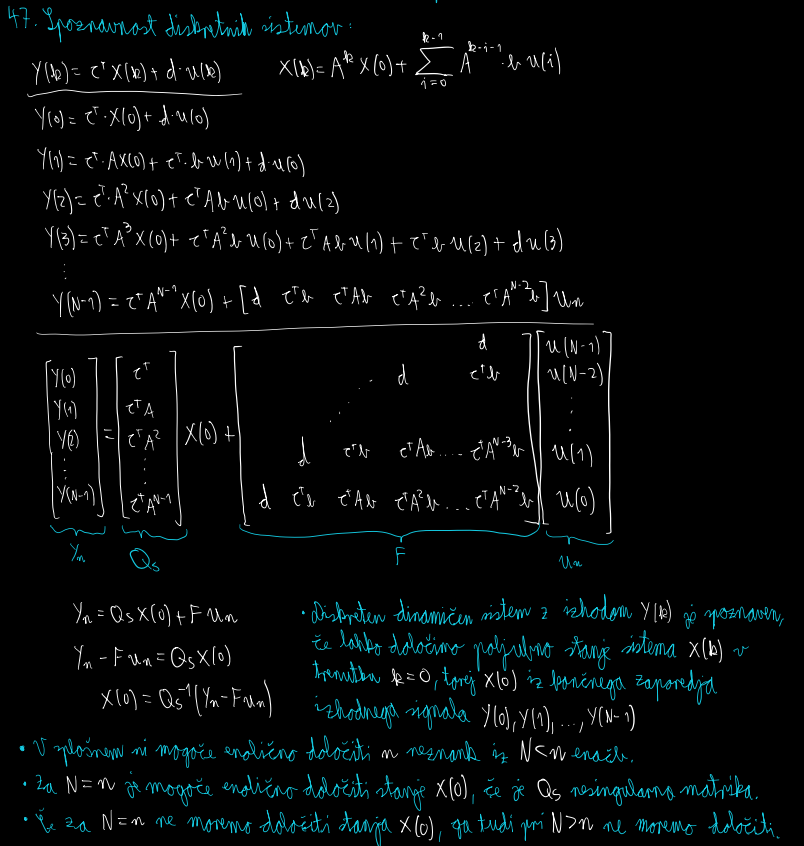 47. Spoznavnost diskretnih sistemov:
y(k) = cᵀx(k) + d·u(k)    x(k) = Aᵏx(0) + ∑_{i=0}^{k-1} A^{k-i-1}·b u(i)
y(0) = cᵀ·x(0) + d·u(0)
y(1) = cᵀ·Ax(0) + cᵀ·b u(1) + d·u(0)
y(2) = cᵀ·A²x(0) + cᵀAb u(0) + d u(2)
y(3) = cᵀA³x(0) + cᵀA²b u(0) + cᵀAb u(1) + cᵀb u(2) + d u(3)
⋮
y(N-1) = cᵀA^{N-1}x(0) + [d cᵀb cᵀAb cᵀA²b ... cᵀA^{N-2}b] uₙ
d u(N-1)
y(0) cᵀ d cᵀb u(N-2)
y(1) cᵀA ⋮
y(2) = cᵀA² x(0) +
⋮ ⋮ d cᵀb cᵀAb .... cᵀA^{N-3}b u(1)
y(N-1) cᵀA^{N-1} d cᵀb cᵀAb cᵀA²b ... cᵀA^{N-2}b u(0)
yₙ Qₛ F uₙ
yₙ = Qₛx(0) + Fuₙ
yₙ - Fuₙ = Qₛx(0)
x(0) = Qₛ⁻¹(yₙ - Fuₙ)
• Diskreten dinamičen sistem z izhodom y(k) je spoznaven,
če lahko določimo poljubno stanje sistema x(k) v
trenutku k=0, torej x(0) iz končnega zaporedja
izhodnega signala y(0), y(1), ..., y(N-1)
• V splošnem ni mogoče enolično določiti n neznank iz N<n enačb.
• Za N=n je mogoče enolično določiti stanje x(0), če je Qₛ nesingularna matrika.
• Če za N=n ne moremo določiti stanja x(0), ga tudi pri N>n ne moremo določiti.